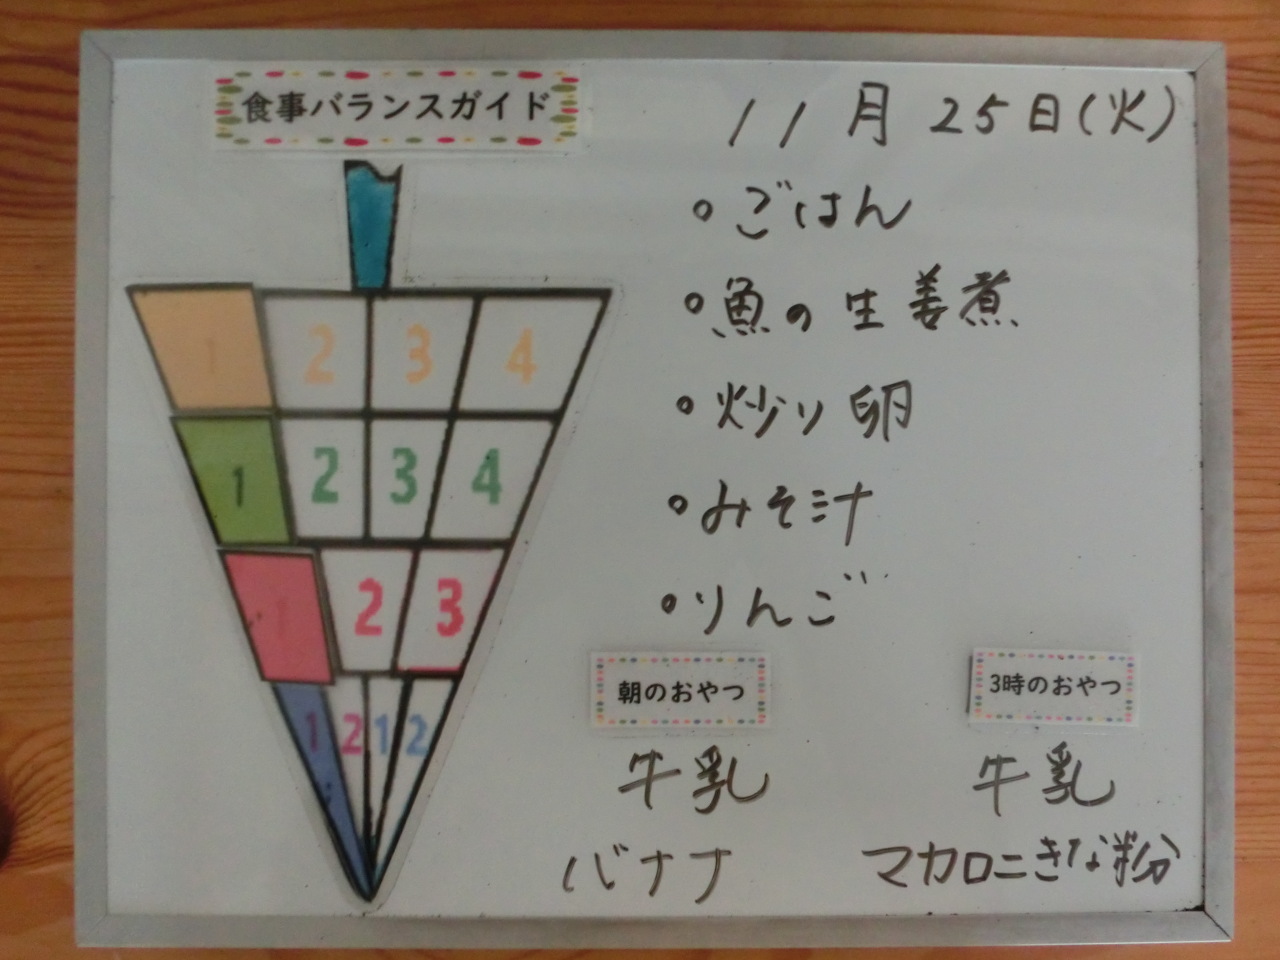 食事バランスガイド
11月25日(火)
ごはん
魚の生姜煮
炒り卵
みそ汁
りんご
1 2 3 4
1 2 3 4
1 2 3
1 2 1 2
朝のおやつ
牛乳
バナナ
3時のおやつ
牛乳
マカロニきな粉